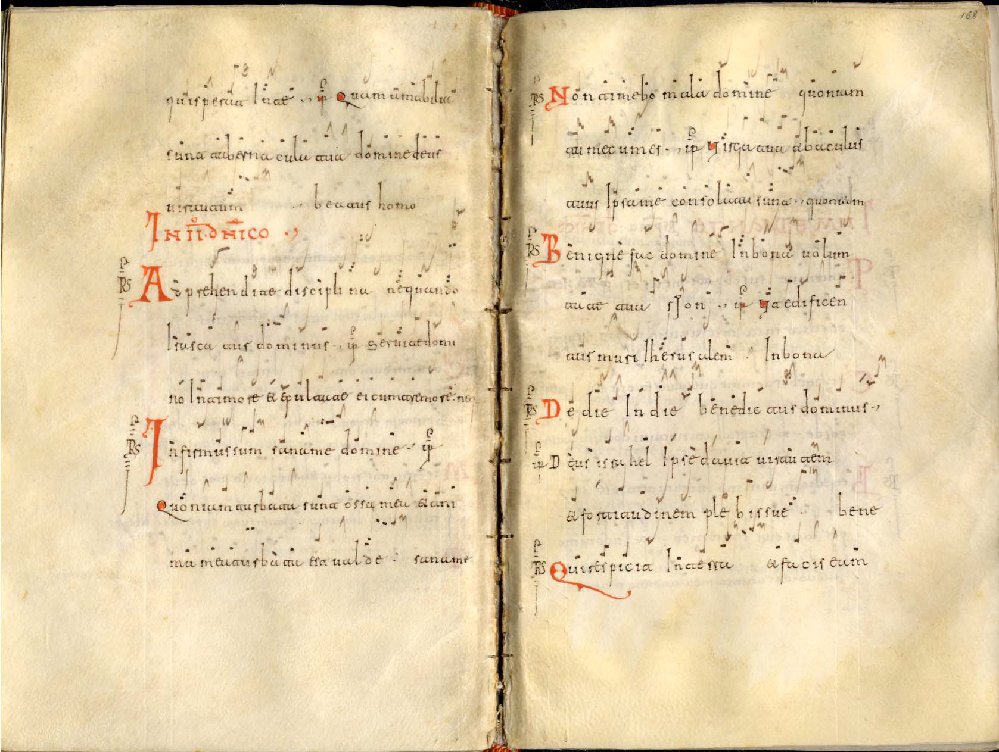 quis petiait In ae ꝟ Quam amabilia
sunt tabernacula tua domine deus
uirtutum beatus homo
IN II dNICO
PRS Adprehendite disciplinam nequando
Irascatur dominus ꝟ seruite domi
no In timore et epulatae ei cum tremore ne
PRS Infirmus sum saname domine ꝟ
Quoniam turbata sunt ossa mea et ani
ma mea turbata est ualde saname
168
PRS Non timebo mala domine quoniam
tu mecum es ꝟ uirga tua et baculus
tuus Ipsa me consolata sunt quoniam
PRS Benigne fac domine In bona uolum
tate tua sion ꝟ ut aedificen
tur muri Iherusalem In bona
PRS De die In die benedictus dominus
ꝟ Deus israhel Ipse dauit uirtutem
et fortitudinem plebis sue bene
PRS Qui respicit In terra et facis eam